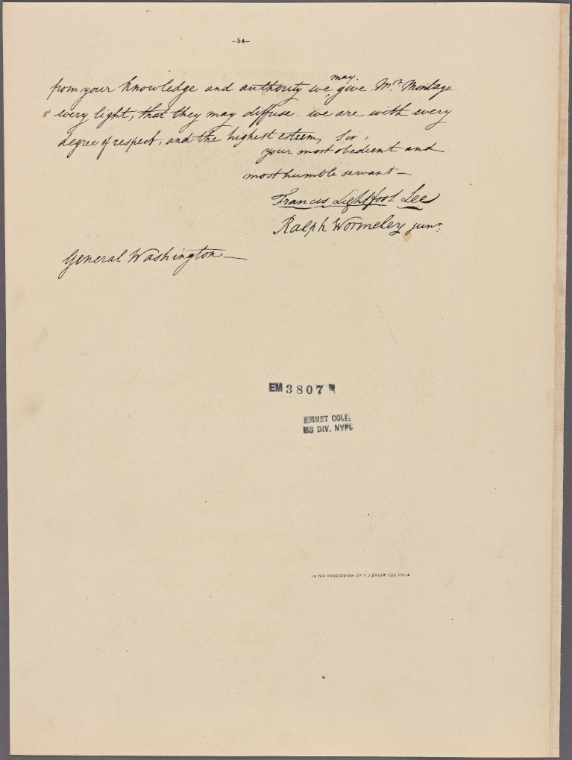 —54—
may
from your knowledge and authority we give Mr. Montage
every light, that they may diffuse. we are with every
degree of respect, and the highest esteem, Sir,
your most obedient and
most humble servant—
Francis Lightfoot Lee
Ralph Wormeley junr.
General Washington—
EM 3807
EMMET COLL.
MS DIV. NYPL
IN THE POSSESSION OF